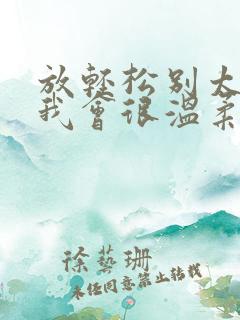 放轻松别太
我会很温柔
徐艺珊
未经同意禁止转载